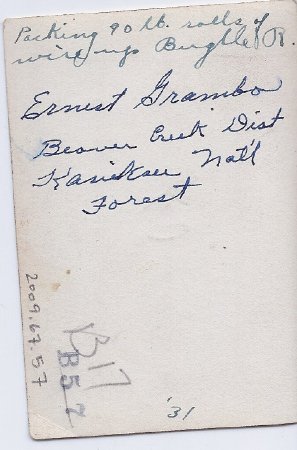 Packing 90 lb. rolls of
wire up Bugle R.
Ernest Grambo
Beaver Creek Dist
Kaniksu Nat'l
Forest
2009.67.57
B17
B57
'31